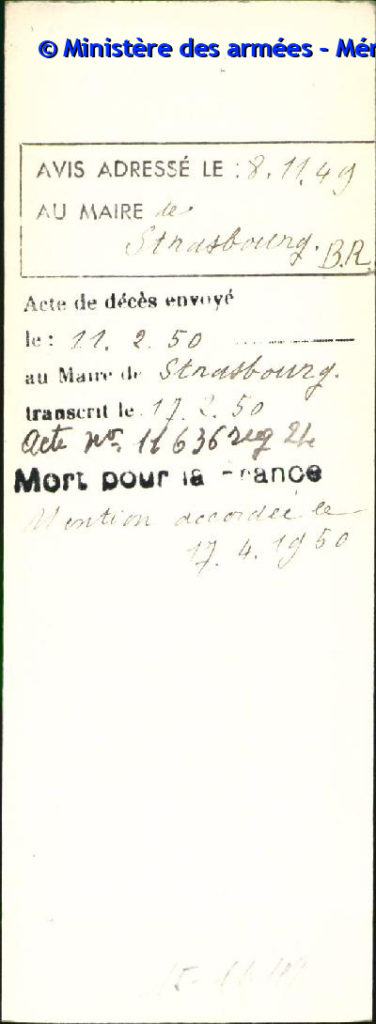 © Ministère des armées - Mé
AVIS ADRESSÉ LE : 8.11.49
AU MAIRE de
Strasbourg. B.R.
Acte de décès envoyé
le : 11. 2. 50
au Maire de Strasbourg.
transcrit le 17. 2. 50
Acte no. 11636 reg 24
Mort pour la France
Mention accordée le
17. 4. 1950